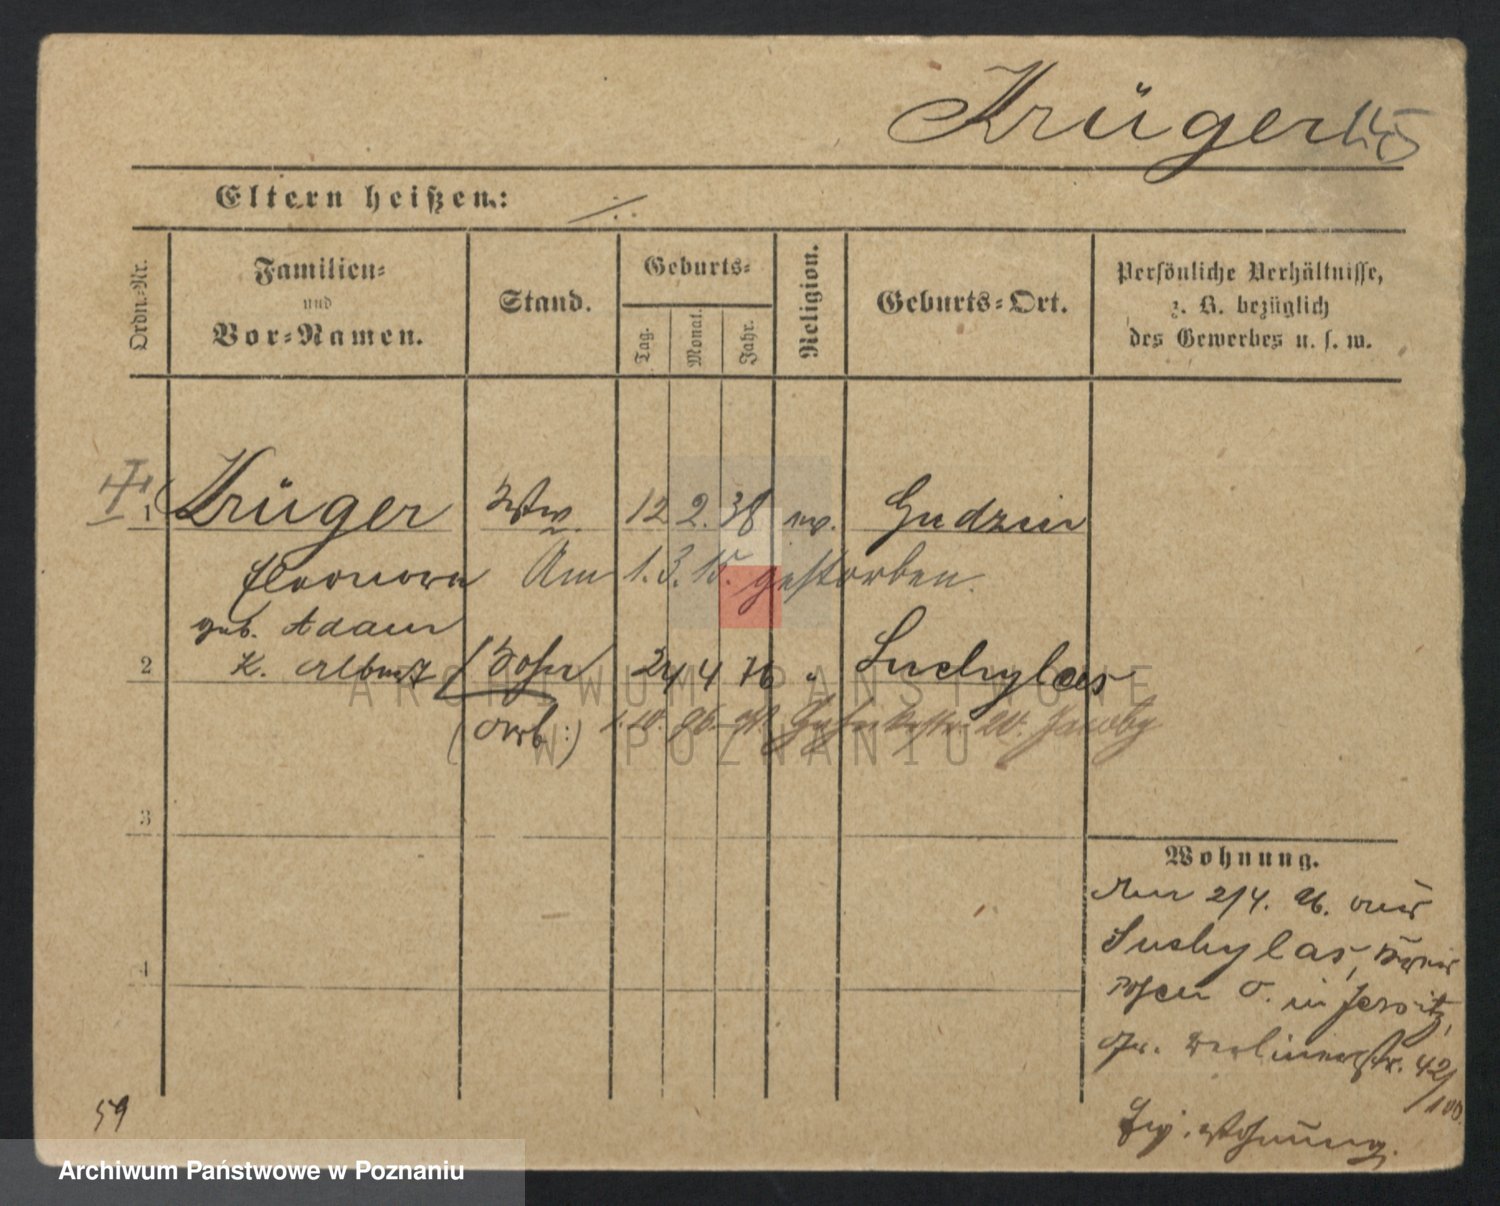 Krüger
Eltern heißen: ./.
Ordn.-Nr.
Familien-
und
Vor-Namen.
Stand.
Geburts-
Tag.
Monat.
Jahr.
Religion.
Geburts-Ort.
Persönliche Verhältnisse,
z. B. bezüglich
des Gewerbes u. s. w.
1 Krüger Ww. 12 2. 38 ev. Gudzin
Eleonora Am 1.3.15. gestorben.
geb. Adam
2 K. Albert Sohn 24 4 76 " Suchylas
(Arb:)
3
4
Wohnung.
2/4. 96. aus
Suchylas, Kreis
Posen O. in Jersitz,
Gr. Berlinerstr. 42/
100
Eig. Wohnung.
59
ARCHIWUM PAŃSTWOWE
W POZNANIU
Archiwum Państwowe w Poznaniu